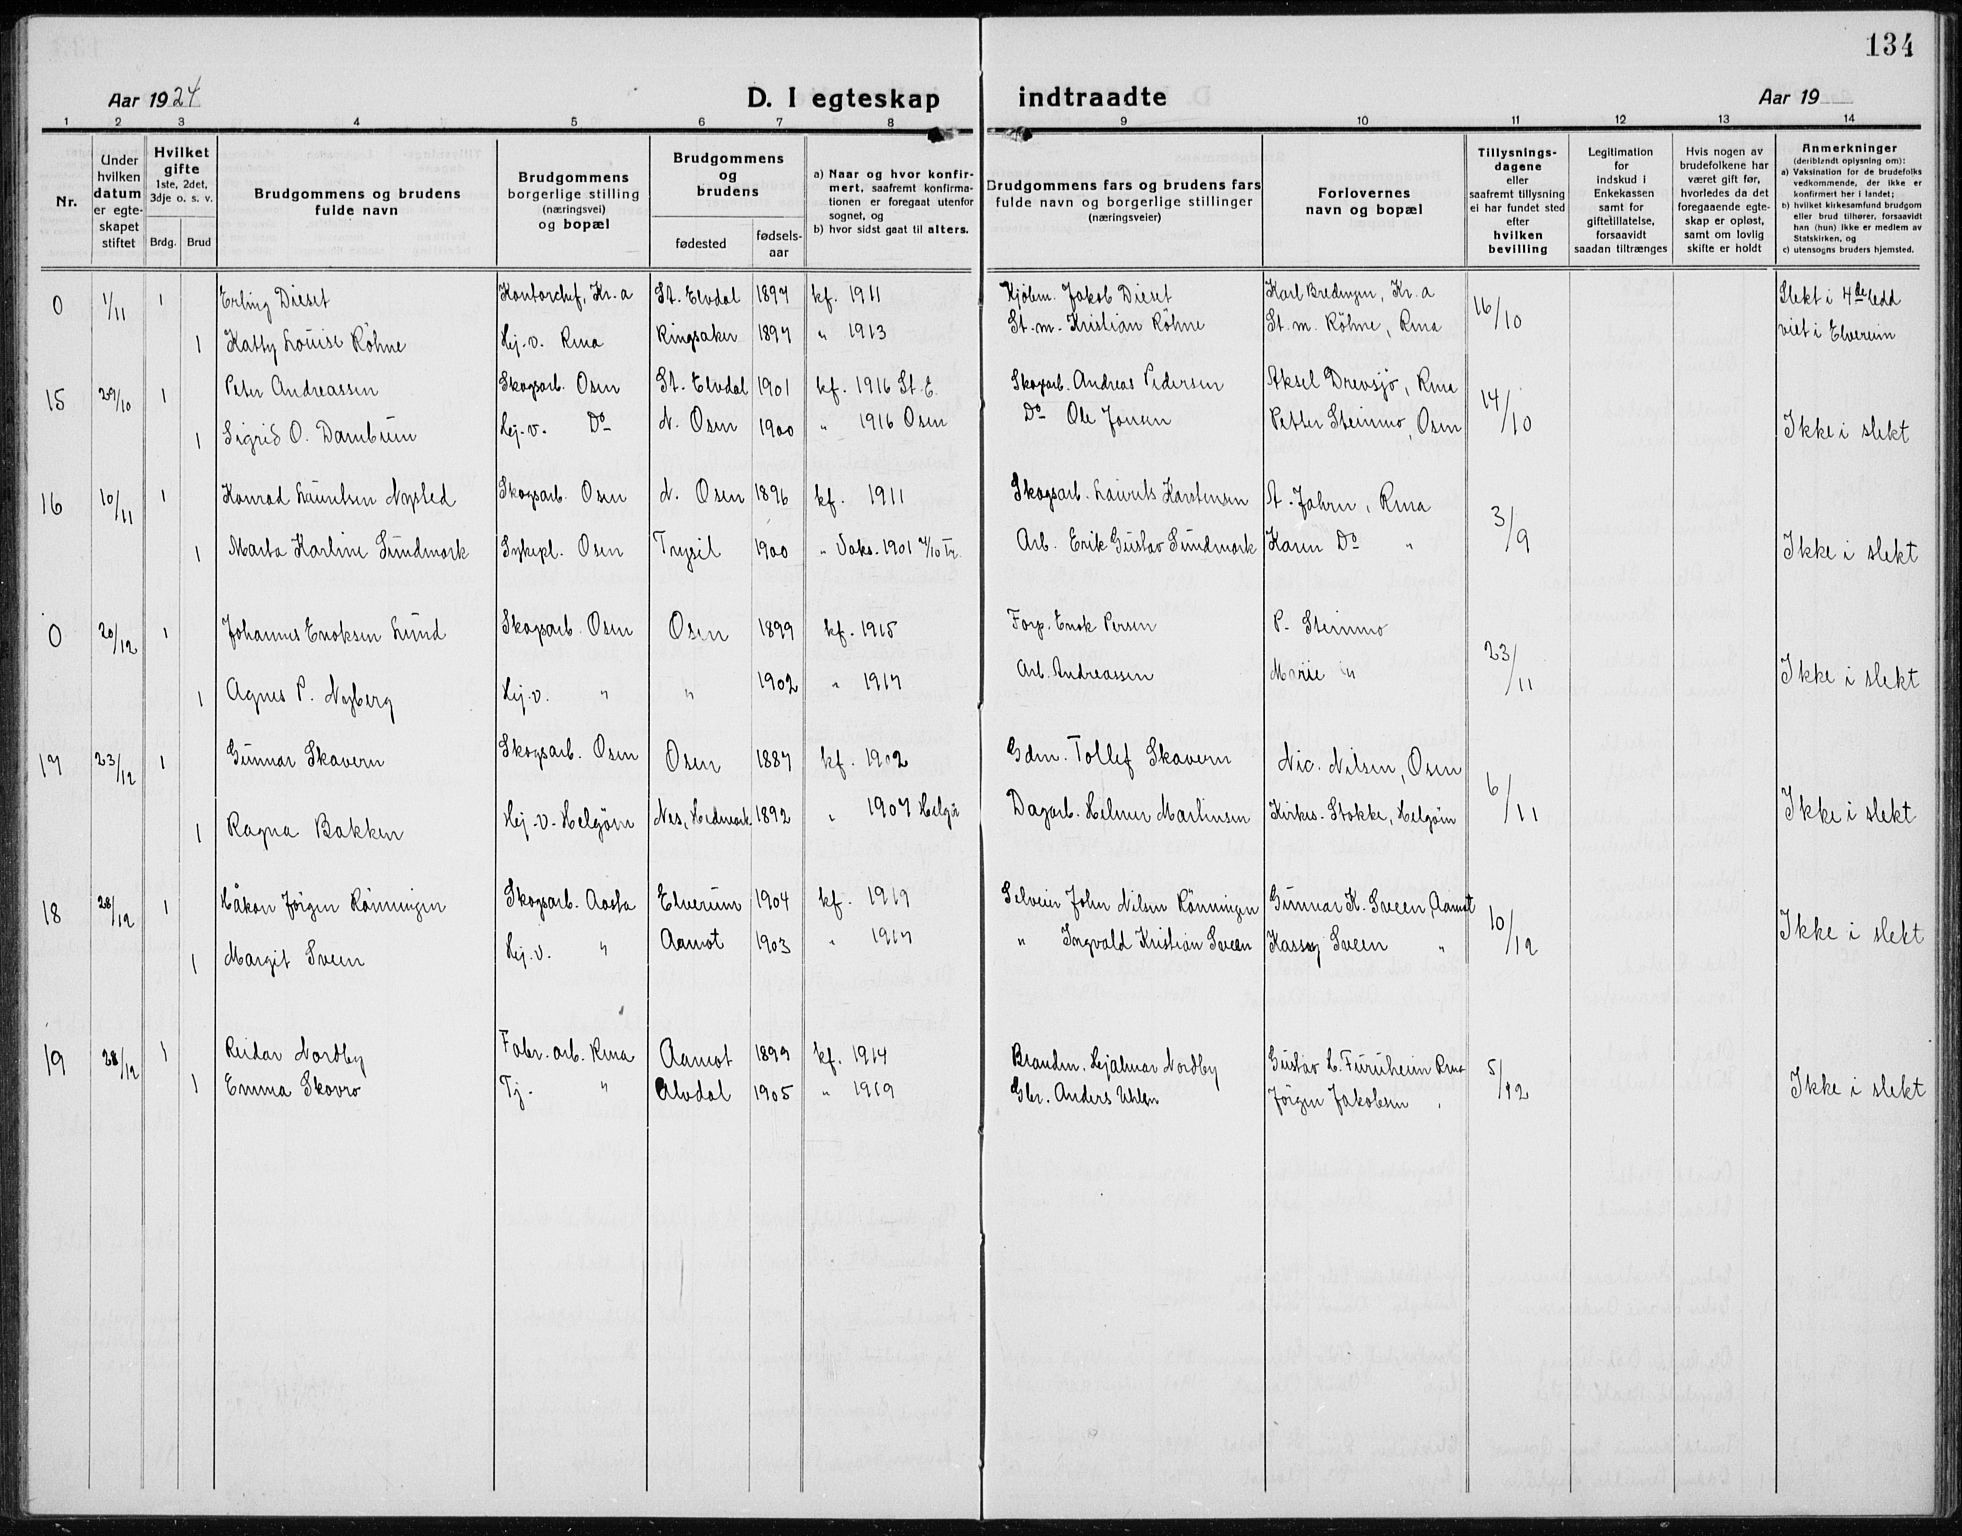 134
Aar 1924 D. I egteskap indtraadte Aar 19
1 2 3 4 5 6 7 8 9 10 11 12 13 14
Nr.
Under hvilken datum er egte-skapet stiftet
Hvilket gifte 1ste, 2det, 3dje o. s. v.
Brdg. Brud
Brudgommens og brudens fulde navn
Brudgommens borgerlige stilling (næringsvei) og bopæl
Brudgommens og brudens
fødested fødsels-aar
a) Naar og hvor konfir-mert, saafremt konfirma-tionen er foregaat utenfor sognet, og
b) hvor sidst gaat til alters.
Brudgommens fars og brudens fars fulde navn og borgerlige stillinger (næringsveier)
Forlovernes navn og bopæl
Tillysnings-dagene eller saafremt tillysning ei har fundet sted efter hvilken bevilling
Legitimation for indskud i Enkekassen samt for giftetillatelse, forsaavidt saadan tiltrænges
Hvis nogen av brudefolkene har været gift før, hvorledes da det foregaaende egte-skap er opløst, samt om lovlig skifte er holdt
Anmerkninger (deriblandt oplysning om):
a) Vaksination for de brudefolks vedkommende, der ikke er konfirmert her i landet;
b) hvilket kirkesamfund brudgom eller brud tilhører, forsaavidt han (hun) ikke er medlem av Statskirken, og
c) utensogns bruders hjemsted.
0 1/11 1 Erling Dieset Kontorchef, Kr.a St. Elvdal 1897 kf. 1911 Kjöbm. Jakob Dieset Karl Bredingen, Kr.a 16/10 Slekt i 4de ledd
1 Katty Louise Röhne Hj.v. Rena Ringsaker 1897 " 1913 St.m. Kristian Röhne St.m. Röhne, Rena viet i Elverum
15 29/10 1 Peter Andreassen Skogsarb. Osen St. Elvdal 1901 kf. 1916 St.E. Skogarb. Andreas Pedersen Aksel Drevsjö, Rena 14/10
1 Sigrid O. Dambrun Hj.v. Do N. Osen 1900 " 1916 Osen Do Ole Jonsen Petter Steinmo, Osen Ikke i slekt
16 10/11 1 Konrad Lauritsen Nysted Skogsarb. Osen N. Osen 1896 kf. 1911 Skogsarb. Laurits Karstensen A. Jahren, Rena 3/9
1 Marta Karline Sundmork Sykepl. Osen Trysil 1900 " Vaks. 1901 4/10 Tr. Arb. Erik Gustav Sundmork Karen Do " Ikke i slekt
0 20/12 1 Johannes Enoksen Lund Skogsarb. Osen Osen 1899 kf. 1915 Forp. Enok Persen P. Steinmo 23/11
1 Agnes P. Nyberg Hj.v. " " 1902 " 1917 Arb. Andreassen Marie " Ikke i slekt
17 23/12 1 Gunnar Skavern Skogsarb. Osen Osen 1887 kf. 1902 Gdm. Tollef Skavern Nic. Nilsen, Osen 6/11
1 Ragna Bakken Hj.v. Helgöen Nes, Hedmark 1892 " 1907 Helgö Dagarb. Helmer Martinsen Kirkes. Stokke, Helgöen Ikke i slekt
18 28/12 1 Håkon Jörgen Rönningen Skogsarb. Aasta Elverum 1904 kf. 1919 Selveier John Nilsen Rönningen Gunnar K. Sveen, Aamot 10/12
1 Margit Sveen Hj.v. " Aamot 1903 " 1917 " Ingvald Kristian Sveen Kassay Sveen " Ikke i slekt
19 28/12 1 Reidar Nordby Fabr.arb. Rena Aamot 1899 kf. 1914 Brandm. Hjalmar Nordby Gustav L. Furuheim Rena 5/12
1 Emma Skovro Tj. " Alvdal 1905 " 1919 Gbr. Anders Uhlen Jörgen Jakobsen " Ikke i slekt